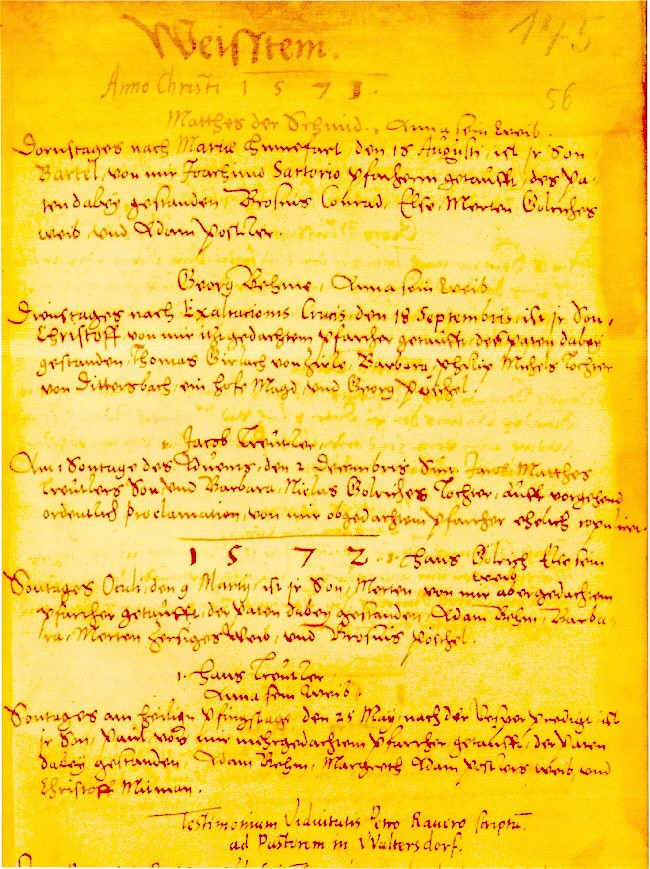 Weisstein.
145
Anno Christi 1571.
56
Matthes der Schmid, Anna sein Weib.
Dornstages nach Mariæ den 18 Augusti, ist jr Son
Bartel, von mir Joachimo Sartorio Pfarherrn getaufft, des Pa-
ten dabey gestanden, Brosius Conrad, Else, Merten Gölriches
weib, und Adam Postler.
Georg Behme, Anna sein Weib
Dienstages nach Exaltacionis Crucis, den 18 Septembris, ist jr Son,
Christoff, von mir itztgedachtem Pfarrher getaufft, des Paten dabey
gestanden, Thomas Girlach von, Barbara, Philip Michels Tochter
von Dittersbach, ein hofe Magd, und Georg Püschel.
1. Jacob Treutler,
Am 1 Sontage des Advents, den 2 Decembris, Sint Jacob, Matthes
Treutlers Son, und Barbara, Niclas Gölriches Tochter, auff vorgehend
ordentlich Proclamation, von mir obgedachtem Pfarrher ehelich copuliret.
1572
1. Hans Gölrich Else sein
weib
Sontages Oculi, den 9 Martij, ist jr Son, Merten, von mir abergedachtem
Pfarrher getaufft, der Paten dabey gestanden, Adam Behm, Barba-
ra, Merten Weib, und Brosius Pöschel.
1. Hans Treutler
Anna sein Weib.
Sontages am heilign Pfingstage, den 25 May, nach der Vesper Predigt, ist
jr Son, Paul, von mir mehrgedachtem Pfarrher getaufft, der Paten
dabey gestanden, Adam Behm, Margreth, Adam Postlers Weib, und
Christoff.
Testimonium Viduitatis Petro Rauero scriptũ
ad Pastorem in Waltersdorf.